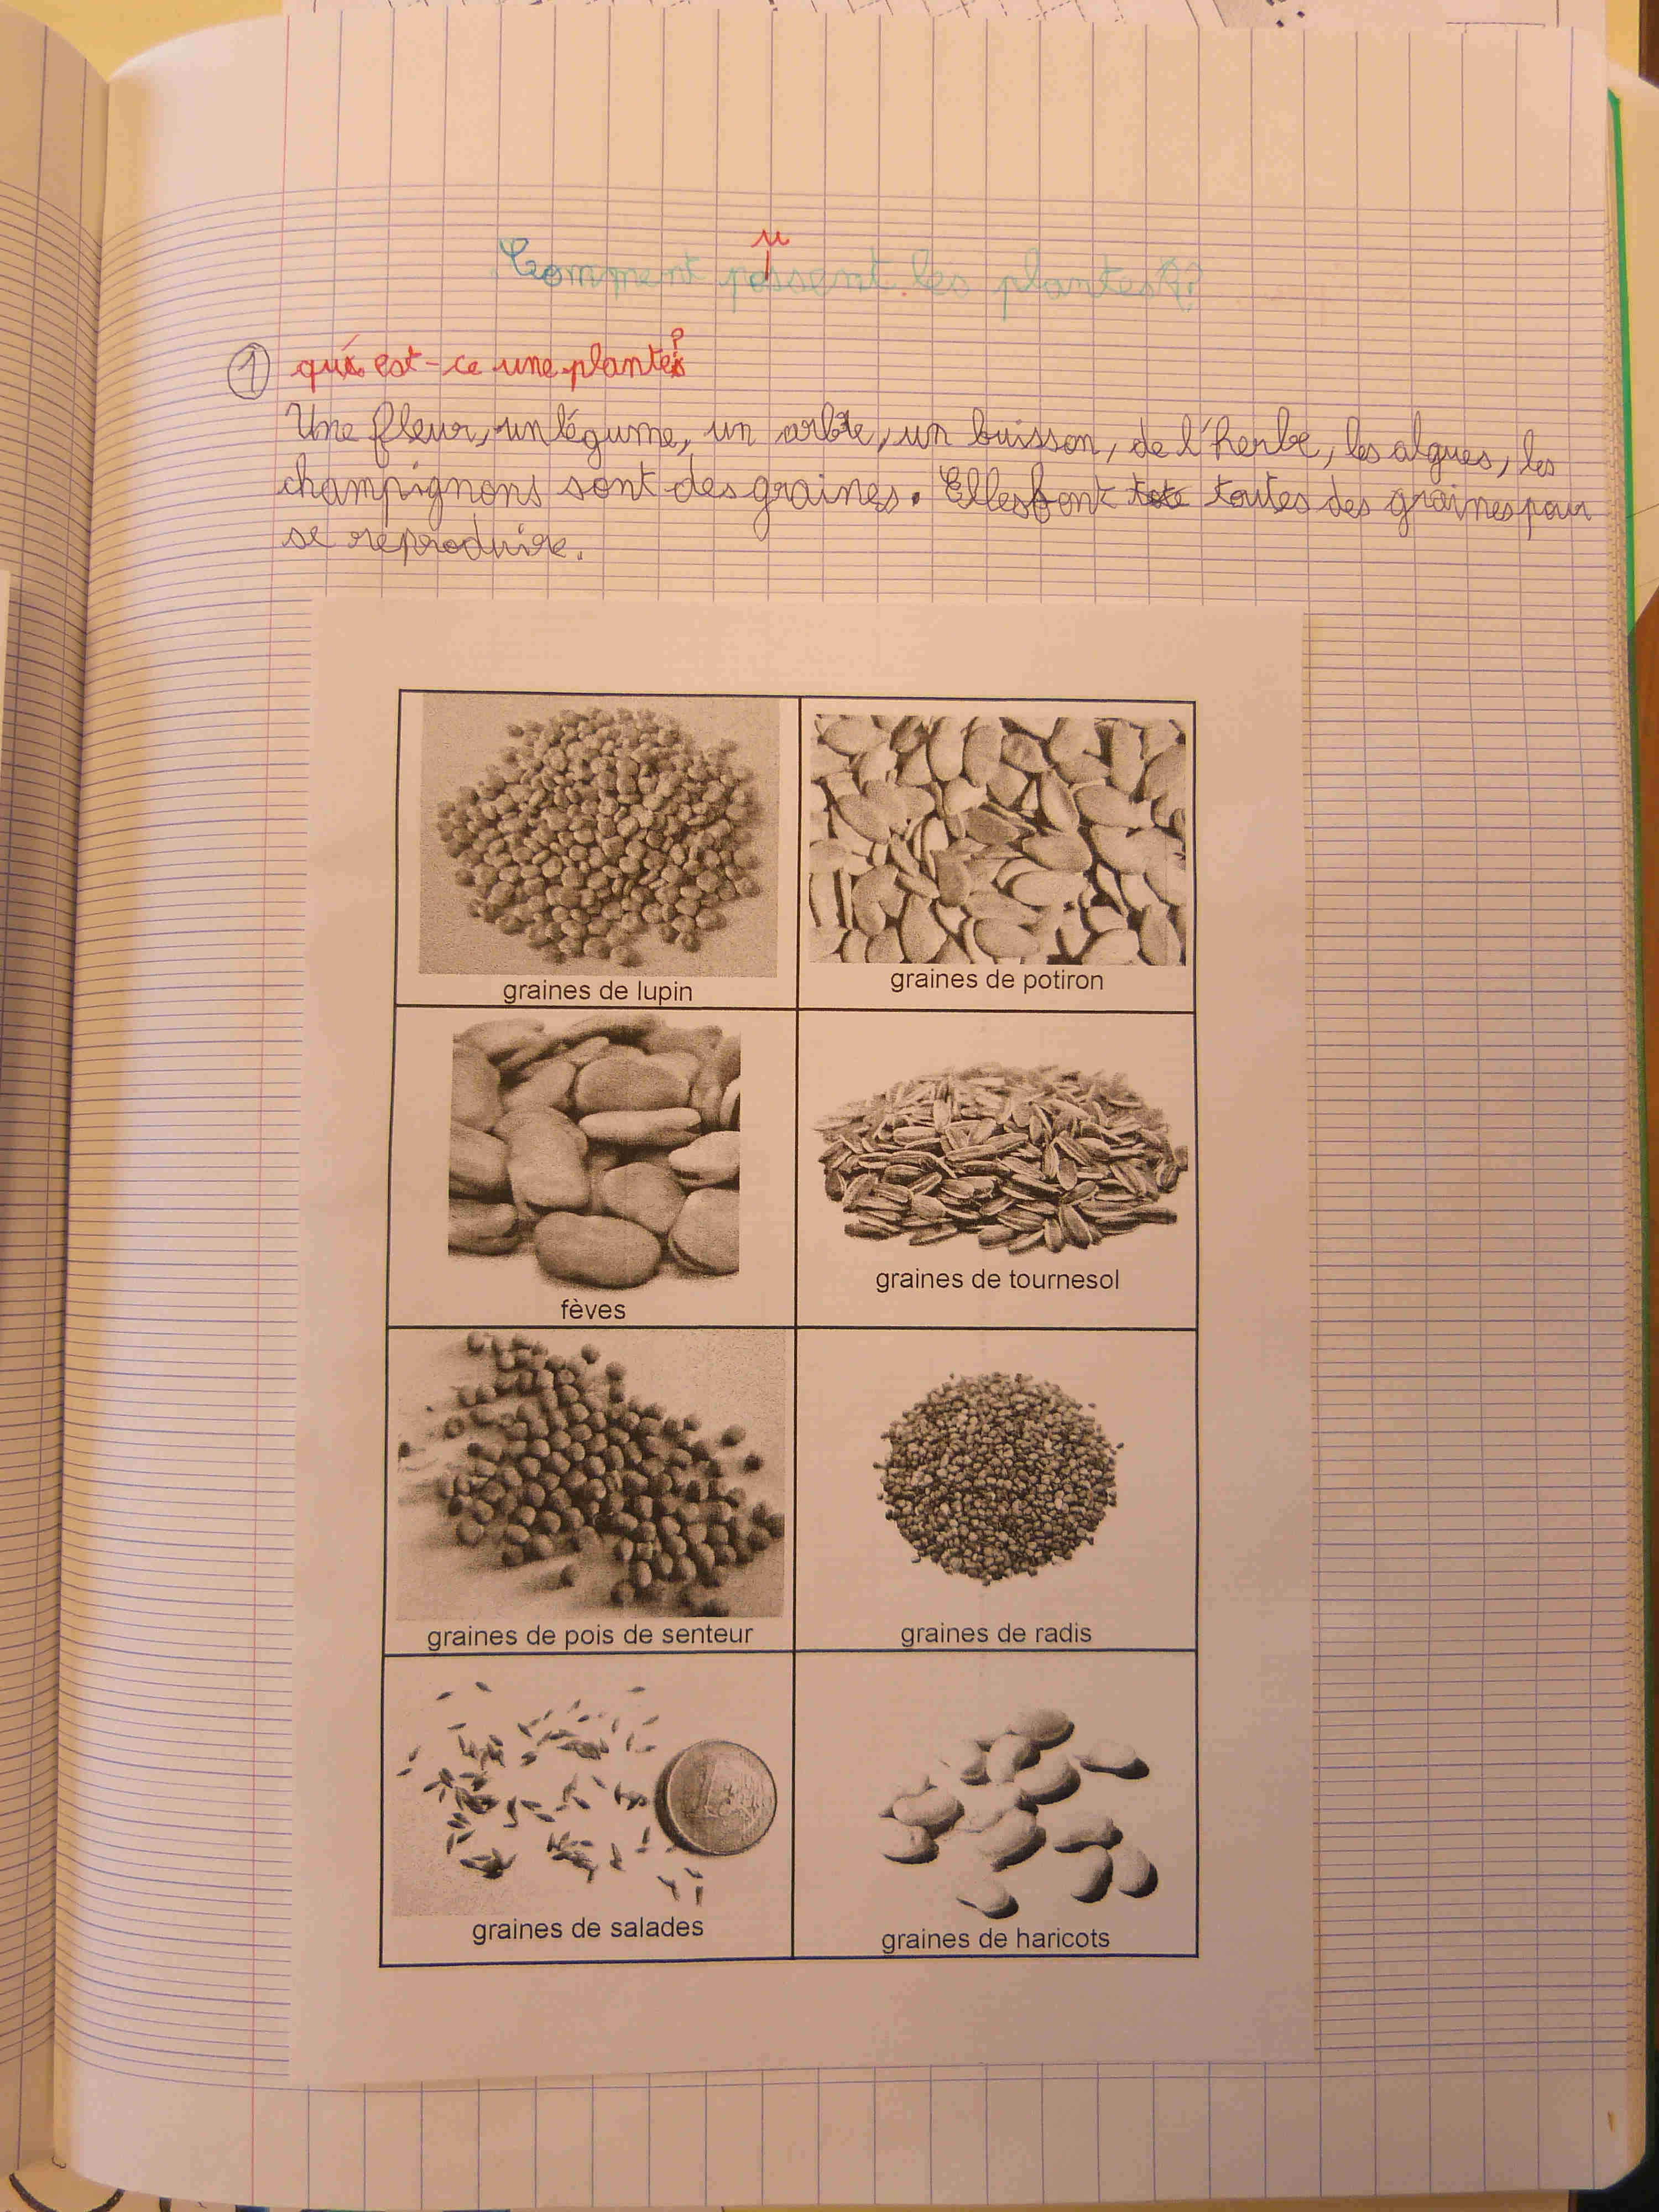 u
Comment possent les plantes ?
① qui est-ce une plante ?
Une fleur, un légume, un arbre, un buisson, de l'herbe, les algues, les
champignons sont des graines. Elles font toutes des graines pour
se reproduire.
graines de lupin
graines de potiron
fèves
graines de tournesol
graines de pois de senteur
graines de radis
graines de salades
graines de haricots